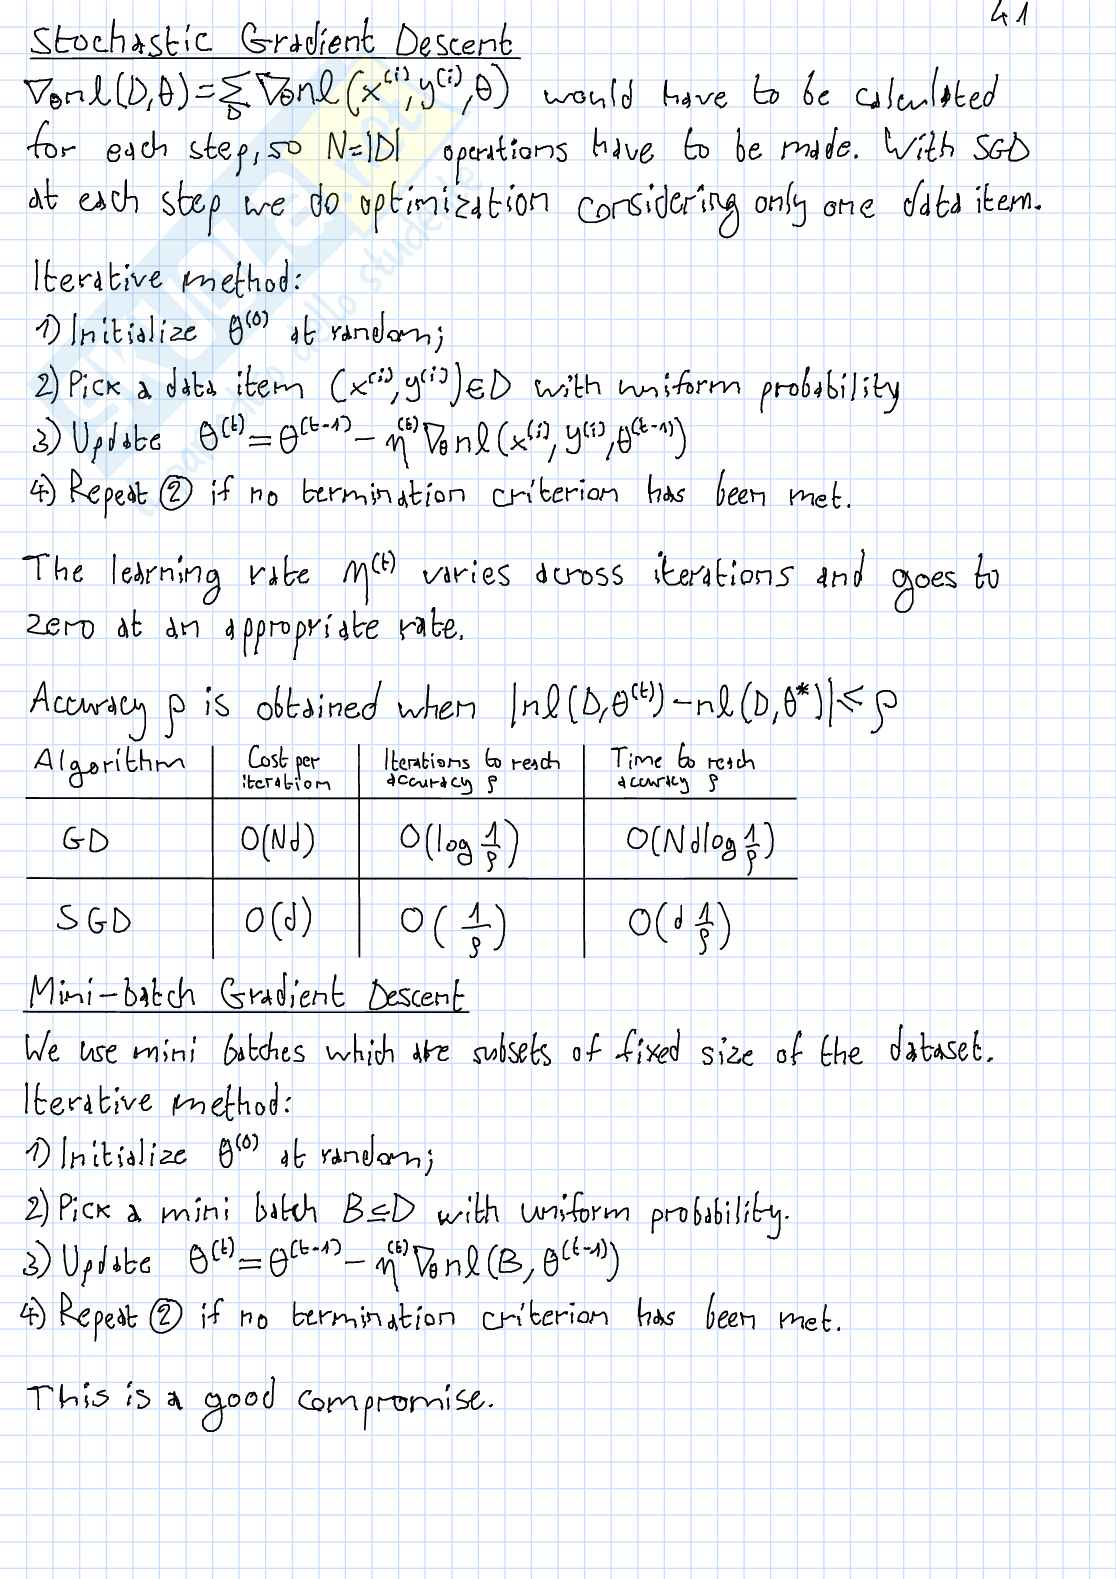 41
Stochastic Gradient Descent
∇θnl(D,θ)=∑D ∇θnl(x⁽ⁱ⁾,y⁽ⁱ⁾,θ) would have to be calculated
for each step, so N=|D| operations have to be made. With SGD
at each step we do optimization considering only one data item.
Iterative method:
1) Initialize θ⁽⁰⁾ at random;
2) Pick a data item (x⁽ⁱ⁾,y⁽ⁱ⁾)∈D with uniform probability
3) Update θ⁽ᵗ⁾=θ⁽ᵗ⁻¹⁾−η⁽ᵗ⁾∇θnl(x⁽ⁱ⁾,y⁽ⁱ⁾,θ⁽ᵗ⁻¹⁾)
4) Repeat ② if no termination criterion has been met.
The learning rate η⁽ᵗ⁾ varies across iterations and goes to
zero at an appropriate rate.
Accuracy ρ is obtained when |nl(D,θ⁽ᵗ⁾)−nl(D,θ*)|≤ρ
Algorithm | Cost per iteration | Iterations to reach accuracy ρ | Time to reach accuracy ρ
GD | O(Nd) | O(log 1/ρ) | O(Nd log 1/ρ)
SGD | O(d) | O(1/ρ) | O(d 1/ρ)
Mini-batch Gradient Descent
We use mini batches which are subsets of fixed size of the dataset.
Iterative method:
1) Initialize θ⁽⁰⁾ at random;
2) Pick a mini batch B⊆D with uniform probability.
3) Update θ⁽ᵗ⁾=θ⁽ᵗ⁻¹⁾−η⁽ᵗ⁾∇θnl(B,θ⁽ᵗ⁻¹⁾)
4) Repeat ② if no termination criterion has been met.
This is a good compromise.